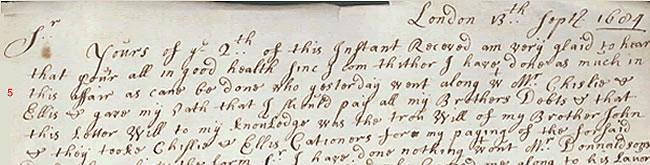 London 13th Septr 1684
Sr
Yours of ye 2th of this Instant Receved am very glaid to hear
that your all in good health sinc I com thither I have done as much in
5 this affair as cane be done who yesterday went along w Mr Chislie &
Ellis & gave my Oath that I should pay all my Brothers Debts & that
this Leter Will to my knonledge was the trou Will of my Brother John
& they tooke Chislie & Ellis Cationers for my paying of the forsaid
I have done nothing wont Mr Donnaldsone